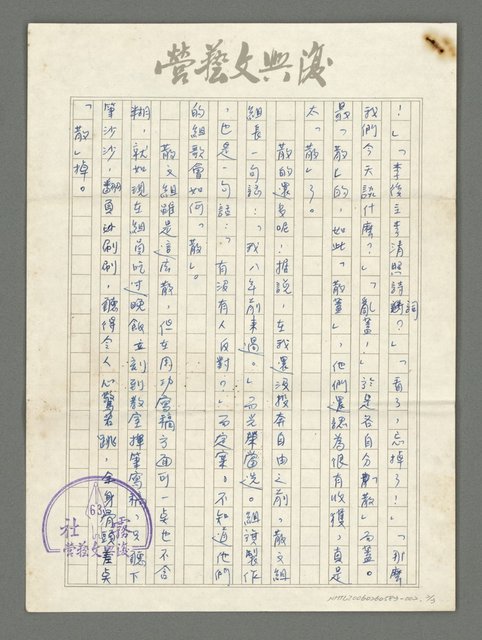 復興文藝營
！」「李後主李清照詩詞？」「看了，忘掉了！」「那麼
我們今天談什麼？」「亂蓋！」於是各自分散而蓋。
最「散」的，如此「散蓋」，他們還認為很有收獲，真是
太「散」了。
散的還多呢，据說，在我還沒投奔自由之前，散文組
組長一句話：「我八年前來過。」而光榮當選。組旗製作
，也是一句話：「有沒有人反對？」而定案。不知道他們
的組歌會如何「散」。
散文組雖是這麼散，但在用功寫稿方面可一点也不含
糊，就如現在組員吃过晚飯立刻到教室揮筆寫稿，只聽下
筆沙沙，翻頁唰唰，聽得令人心驚若跳，全身骨頭差点
「散」掉。
63
霧社
復興文藝營
NMTL20060260589-002. 2/3